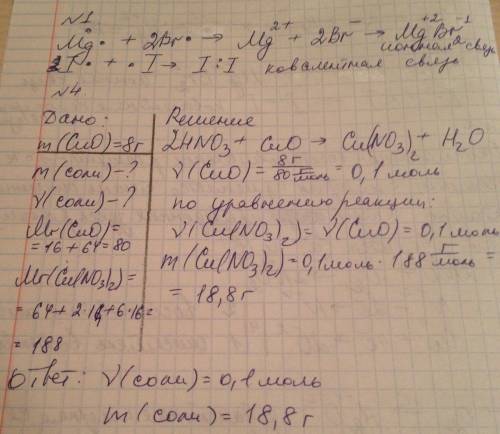 №1
Mg: + 2Br• → Mg²⁺ + 2Br⁻ → Mg⁺²Br₂⁻¹
ионная связь
I• + •I → I:I ковалентная связь
№4
Дано:
m(CuO)=8г
m(соли)-?
ν(соли)-?
Mr(CuO)=
=16+64=80
Mr(Cu(NO₃)₂)=
=64+2·14+6·16=
=188
Решение
2HNO₃+ CuO → Cu(NO₃)₂+ H₂O
ν(CuO)= 8г / 80 г/моль = 0,1 моль
по уравнению реакции:
ν(Cu(NO₃)₂)= ν(CuO)= 0,1 моль
m(Cu(NO₃)₂)=0,1моль · 188 г/моль =
= 18,8г
Ответ: ν(соли)=0,1 моль
m(соли)=18,8г